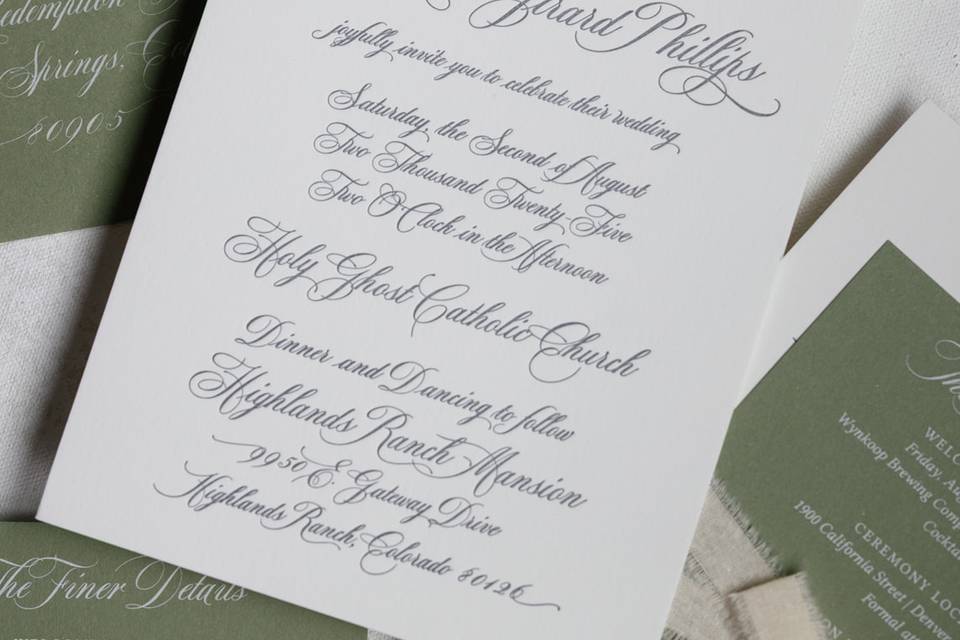 Springs,
80905
Girard Phillips
joyfully invite you to celebrate their wedding
Saturday, the Second of August
Two Thousand Twenty-Five
Two O'Clock in the Afternoon
Holy Ghost Catholic Church
Dinner and Dancing to follow
Highlands Ranch Mansion
9950 E. Gateway Drive
Highlands Ranch, Colorado 80126
The Finer Details
WEL
Friday, Aug
Wynkoop Brewing Comp
Cockta
CEREMONY LOC
1900 California Street | Denver
Formal